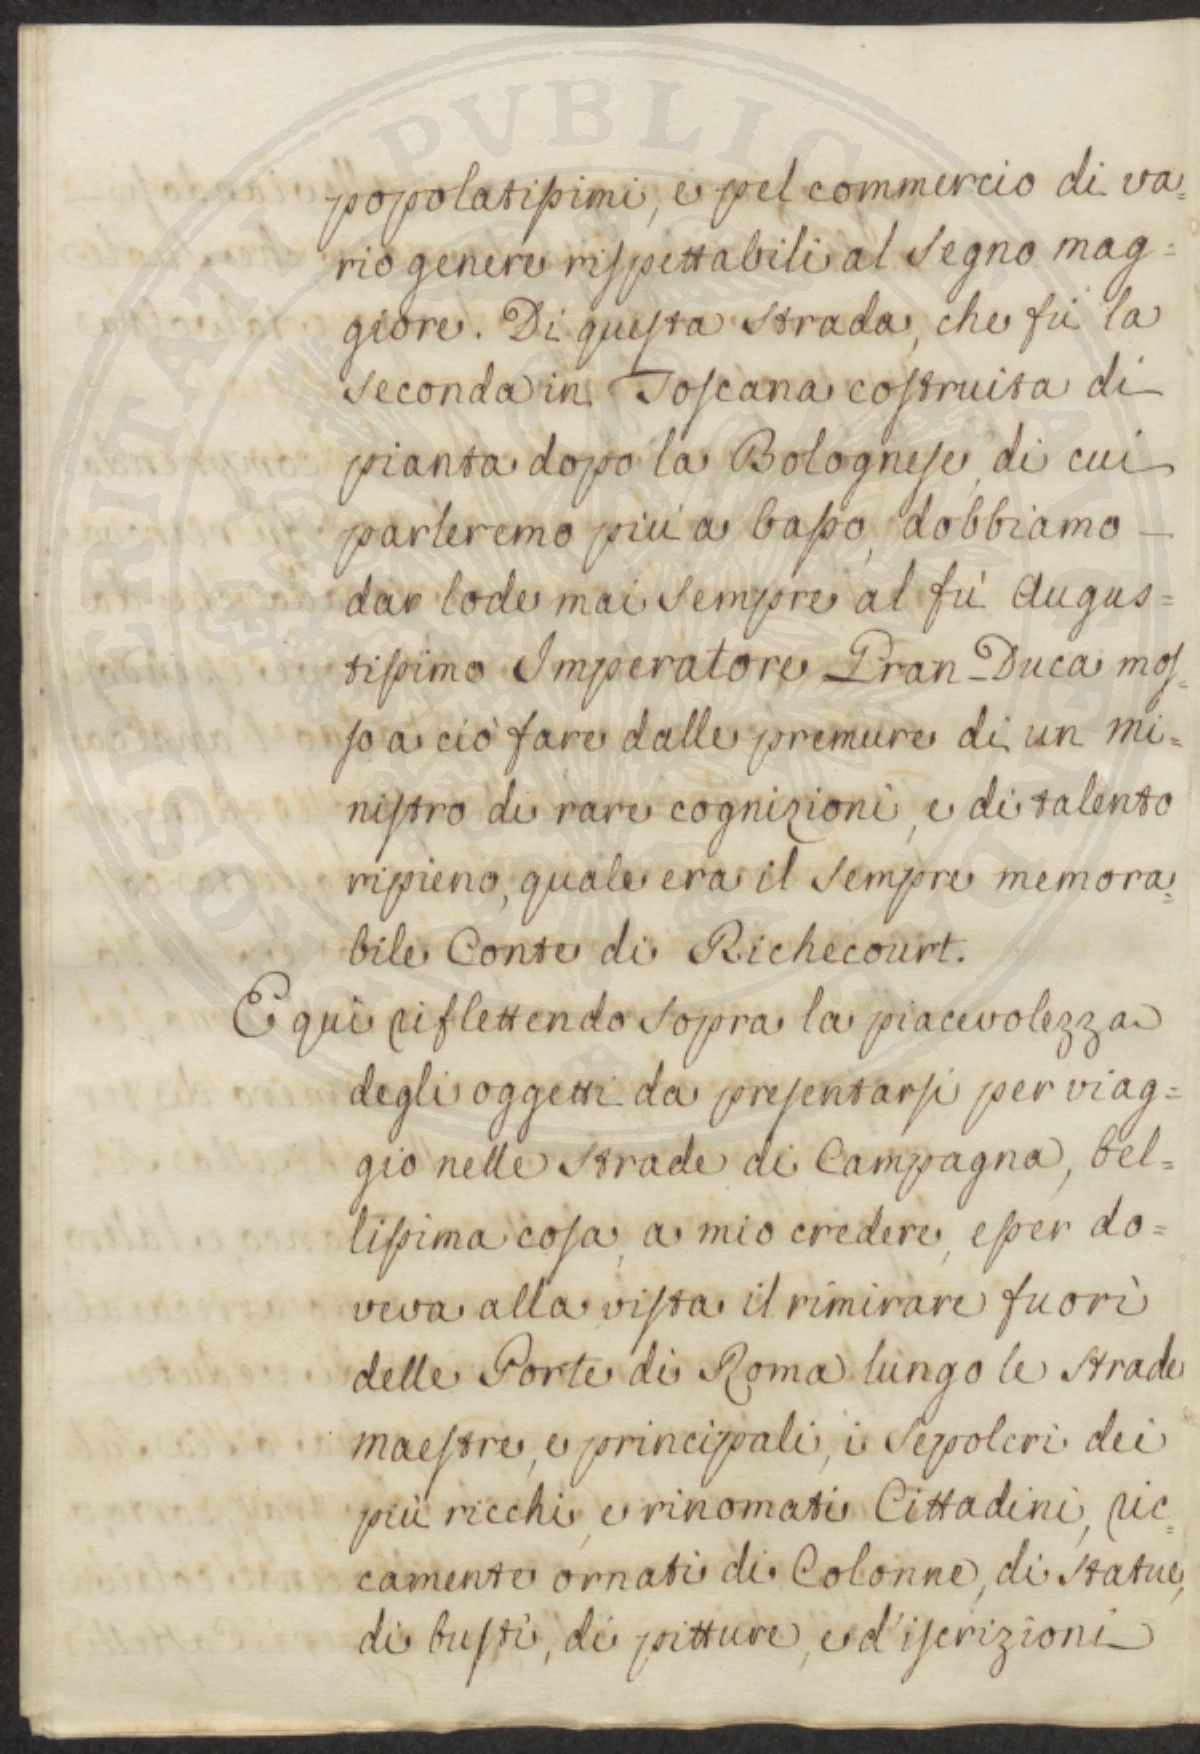 PVBLICAE
POSTERITATI
popolatissimi, e pel commercio di va=
rio genere rispettabili al segno mag=
giore. Di questa strada, che fù la
seconda in Toscana costruita di
pianta dopo la Bolognese, di cui
parleremo più a basso, dobbiamo
dar lode mai sempre al fù Augus=
tissimo Imperatore Gran-Duca mos=
so a ciò fare dalle premure di un mi=
nistro di rare cognizioni, e di talento
ripieno, quale era il sempre memora=
bile Conte di Richecourt.
E quì riflettendo sopra la piacevolezza
degli oggetti da presentarsi per viag=
gio nelle strade di Campagna, bel=
lissima cosa, a mio credere, esser do=
veva alla vista il rimirare fuori
delle Porte di Roma lungo le strade
maestre, e principali, i sepolcri dei
più ricchi, e rinomati Cittadini, ric=
camente ornati di Colonne, di statue,
di busti, di pitture, e d'iscrizioni